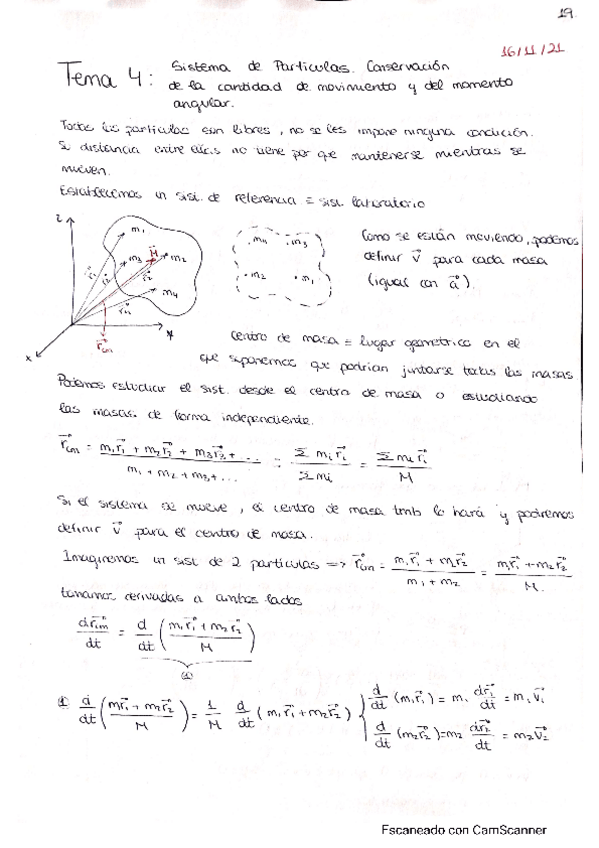 19
16/11/21
Tema 4: Sistema de Partículas. Conservación
de la cantidad de movimiento y del momento
angular.
Todas las partículas son libres, no se les impone ninguna condición.
Su distancia entre ellas no tiene por que mantenerse mientras se
mueven.
Establecemos un sist. de referencia = sist. laboratorio
z
m₁
m₃
M
m₂
m₄
r⃗cm
x
y
m₄
m₃
m₂
m₁
Como se están moviendo, podemos
definir v⃗ para cada masa
(igual con a⃗).
Centro de masa = lugar geométrico en el
que suponemos que podrían juntarse todas las masas
Podemos estudiar el sist. desde el centro de masa o estudiando
las masas de forma independiente.
r⃗cm = m₁r⃗₁ + m₂r⃗₂ + m₃r⃗₃ + ... / m₁ + m₂ + m₃ + ... = Σ mᵢr⃗ᵢ / Σ mᵢ = Σ mᵢr⃗ᵢ / M
Si el sistema se mueve, el centro de masa tmb lo hará y podremos
definir v⃗ para el centro de masa.
Imaginemos un sist de 2 partículas => r⃗cm = m₁r⃗₁ + m₂r⃗₂ / m₁ + m₂ = m₁r⃗₁ + m₂r⃗₂ / M
tomamos derivadas a ambos lados
dr⃗cm/dt = d/dt (m₁r⃗₁ + m₂r⃗₂ / M)
①
① d/dt (m₁r⃗₁ + m₂r⃗₂ / M) = 1/M d/dt (m₁r⃗₁ + m₂r⃗₂) { d/dt (m₁r⃗₁) = m₁ dr⃗₁/dt = m₁v⃗₁
d/dt (m₂r⃗₂) = m₂ dr⃗₂/dt = m₂v⃗₂
Escaneado con CamScanner